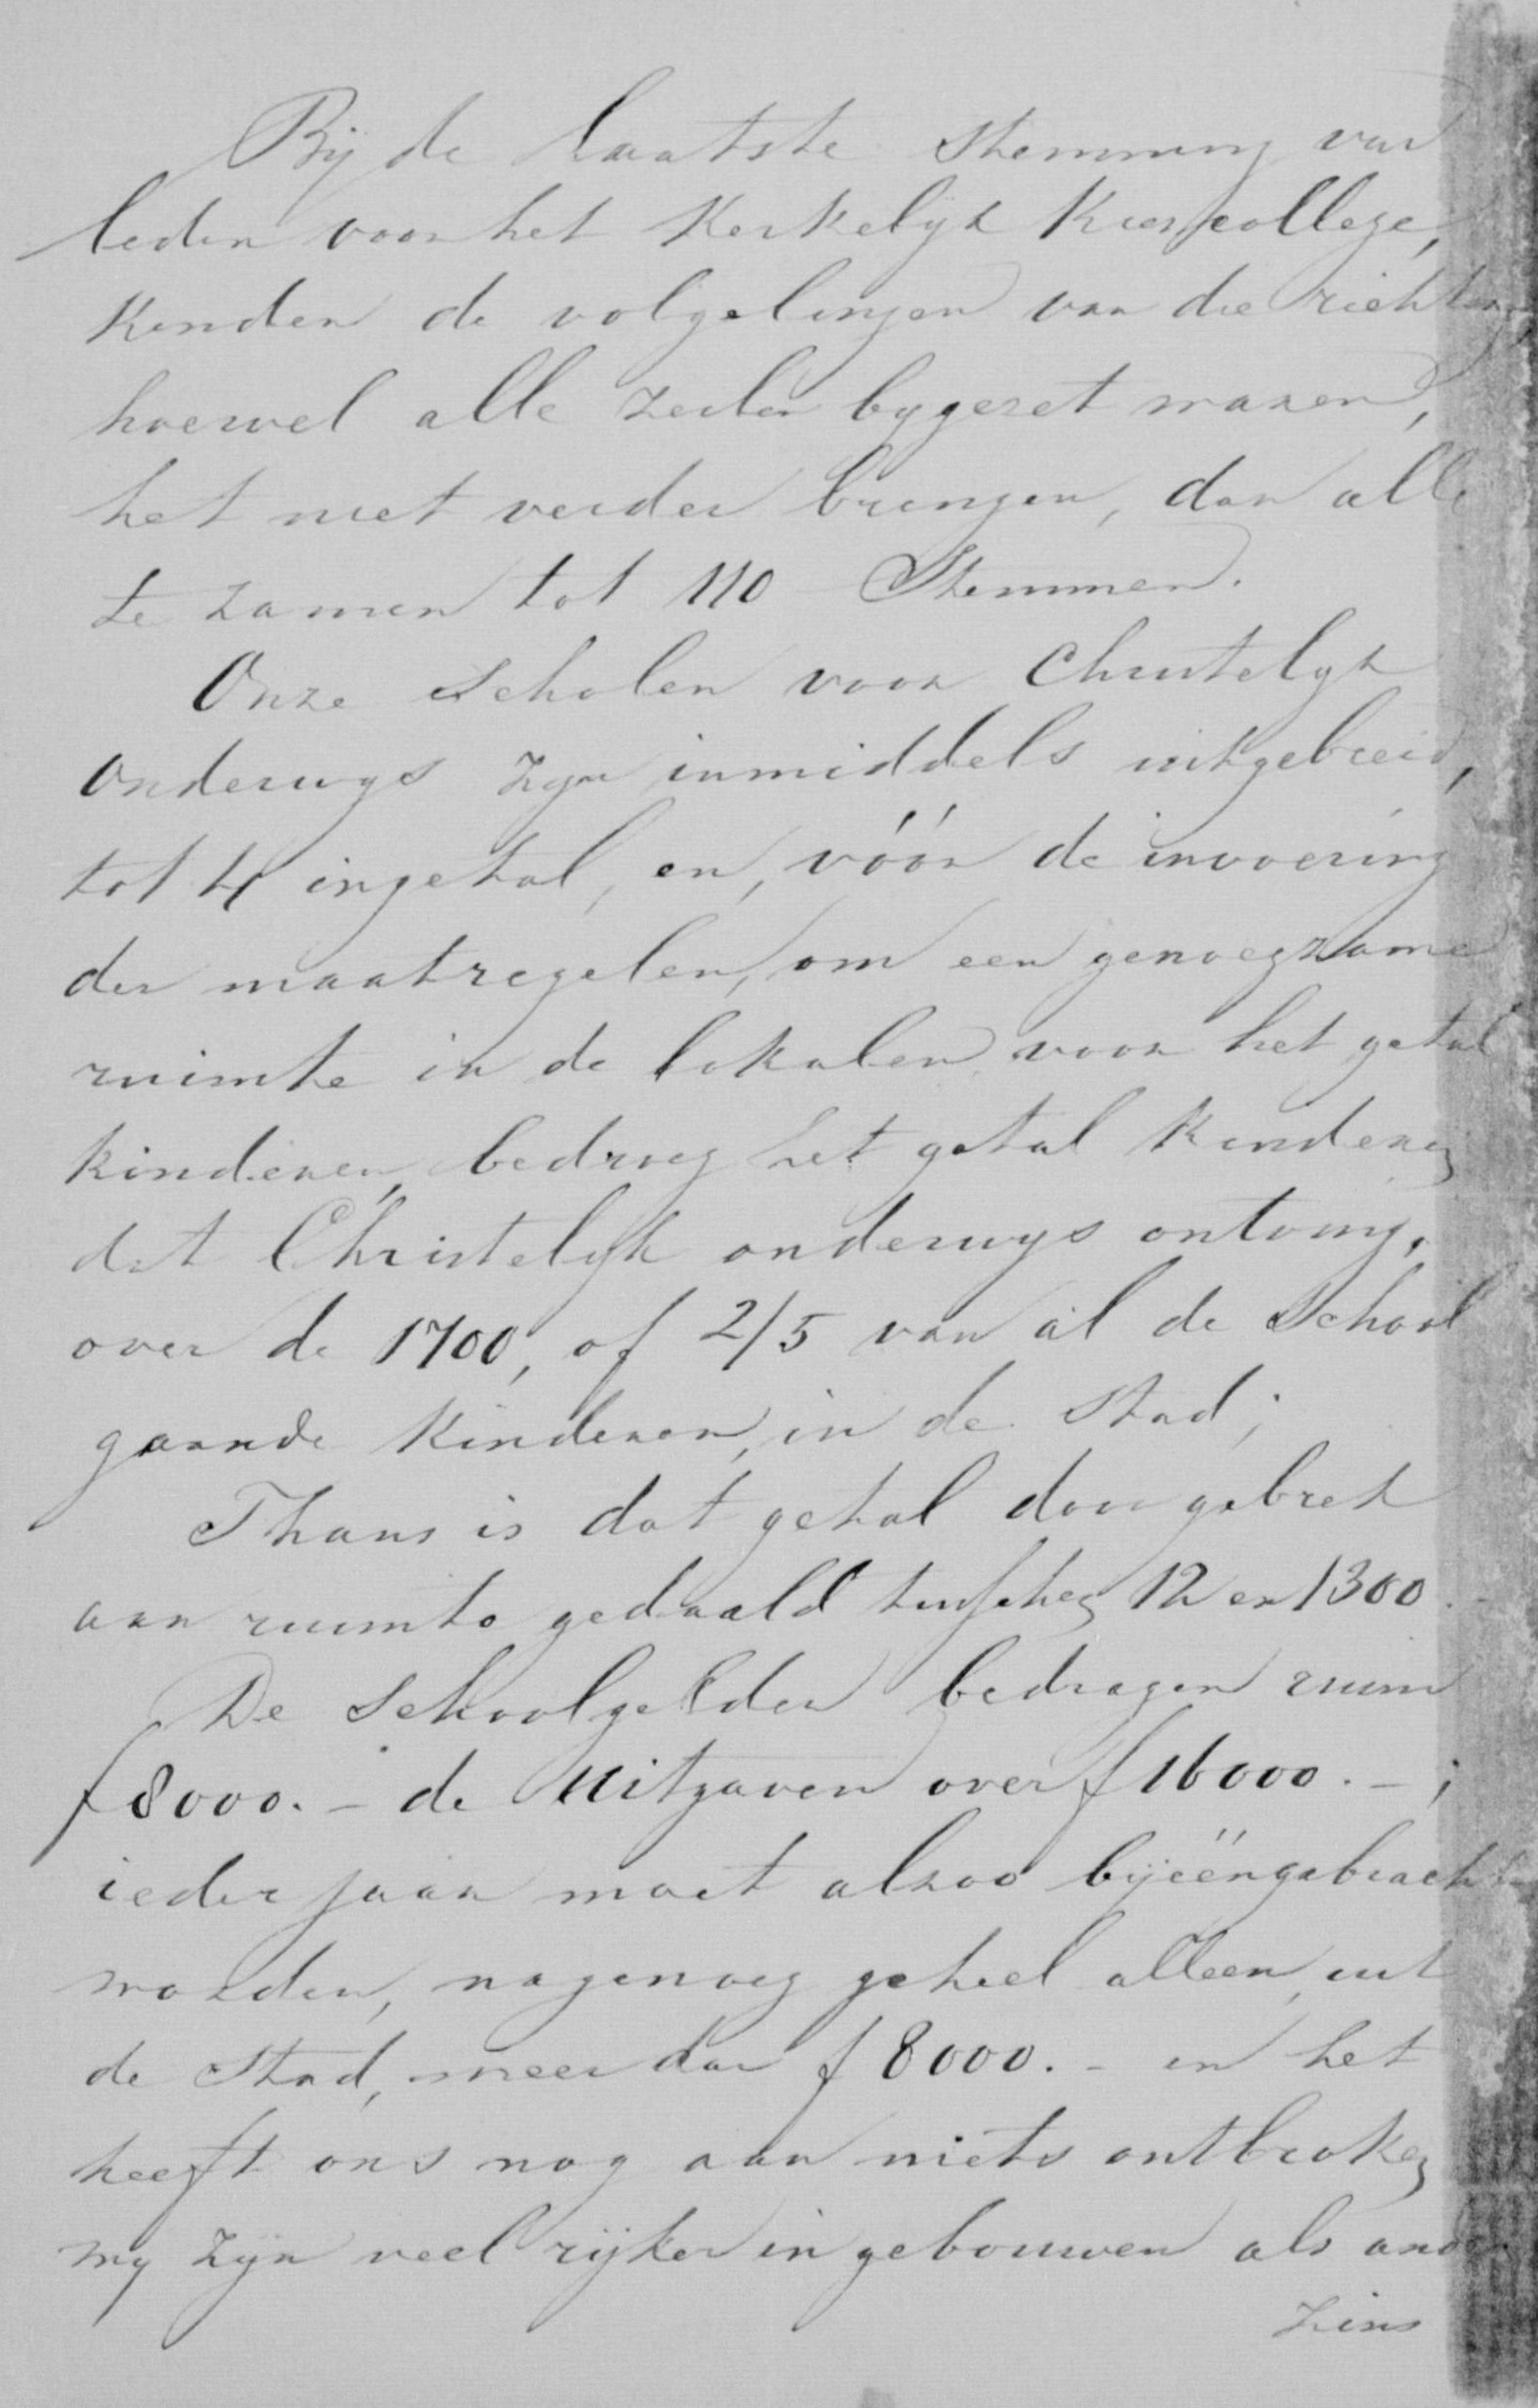 Bij de laatste stemming van
leden voor het Kerkelijk Kiescollege,
konden de volgelingen van die richting
hoewel alle zeilen bygezet waren,
het niet verder brengen, dan alle
te zamen tot 110 Stemmen.
Onze scholen voor Christelyk
Onderwys zyn inmiddels uitgebreid,
tot 4 ingetal, en, vóór de invoering
der maatregelen, om een genoegzame
ruimte in de lokalen voor het getal
kinderen, bedroeg het getal Kinderen
dat Christelyk onderwys ontving,
over de 1700, of 2/5 van al de School
gaande Kinderen, in de Stad;
Thans is dat getal door gebrek
aan ruimte gedaald tusschen 12 en 1300.
De Schoolgelden bedragen ruim
f 8000.- de Uitgaven over f 16000.-;
ieder jaar moet alzoo bijeëngebracht
worden, nagenoeg geheel alleen, uit
de Stad, meer dan f 8000.- en het
heeft ons nog aan niets ontbroken
wy zyn veel rijker in gebouwen als
zins